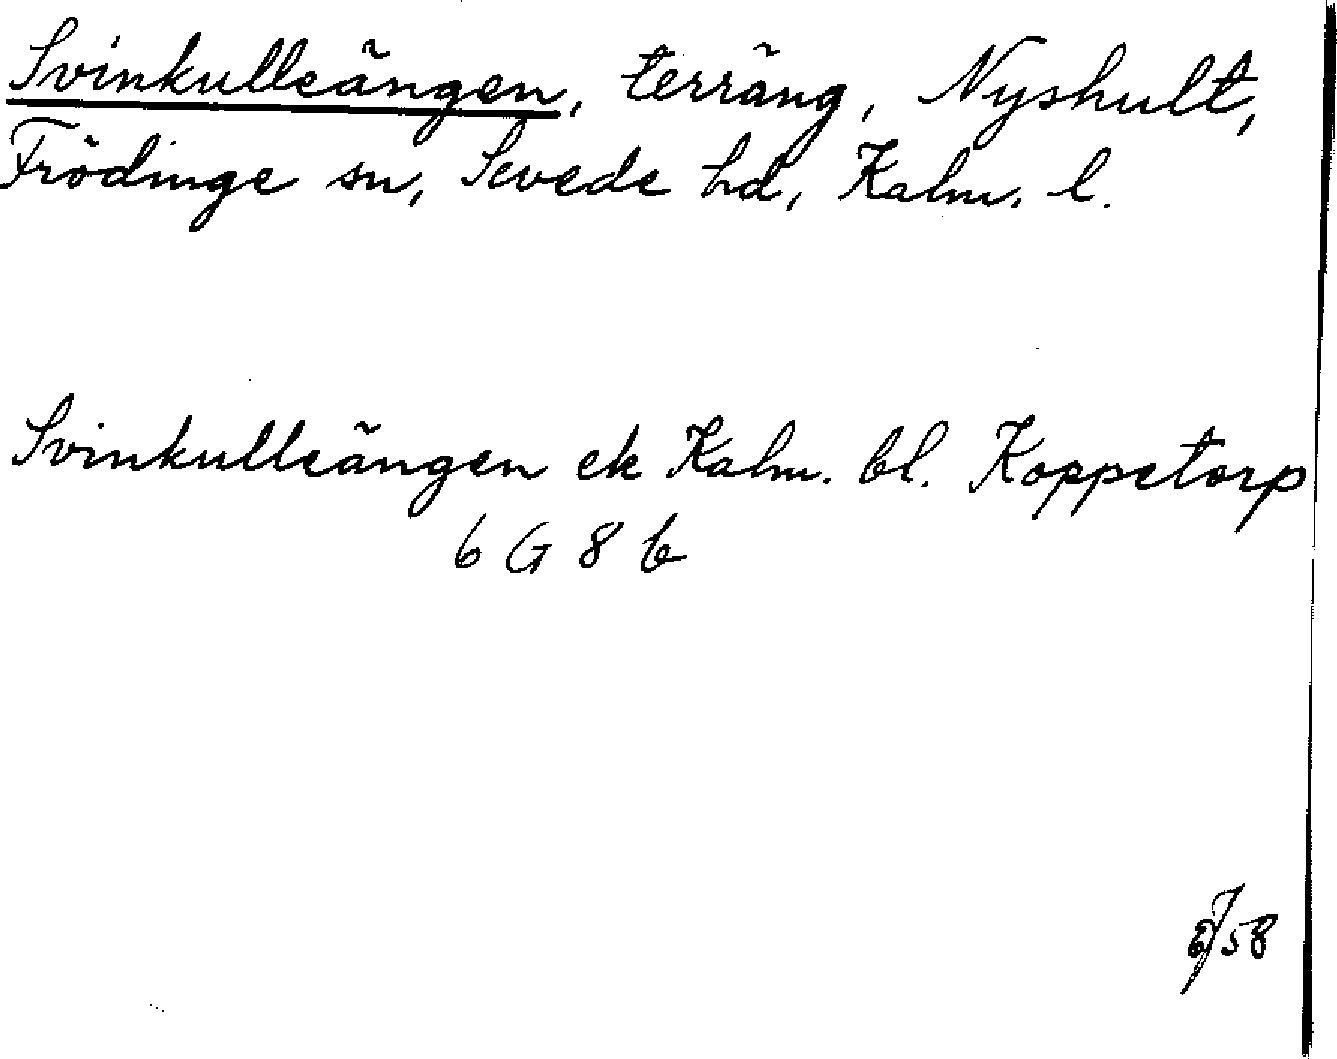 Svinkulleängen, terräng, Nyshult,
Frödinge sn, Sevede hd, Kalm. l.
Svinkulleängen ek Kalm. bl. Koppetorp
6 G 8 b
58